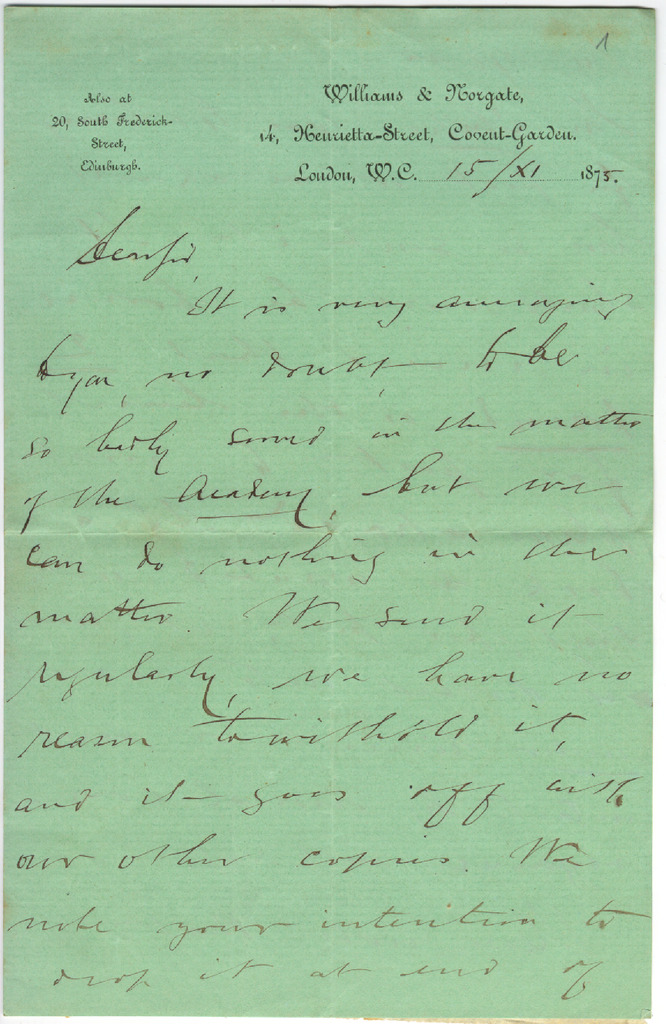 1
Also at
20, South Frederick-
Street,
Edinburgh.
Williams & Norgate,
14, Henrietta-Street, Covent-Garden.
London, W.C. 15/XI 1875.
Dear Sir,
It is very annoying
to you, no doubt, to be
so badly served in the matter
of the Academy, but we
can do nothing in the
matter. We send it
regularly, we have no
reason to withhold it,
and it goes off with
our other copies. We
note your intention to
drop it at end of